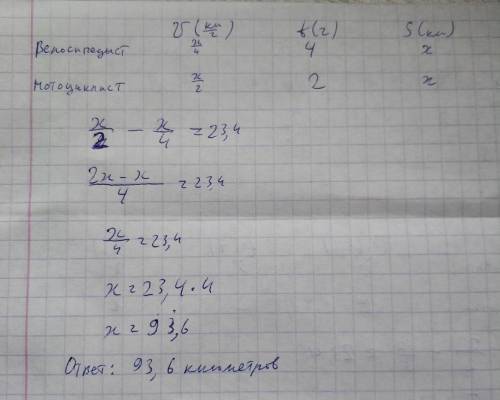 V (км/г) t (г) S (км)
Велосипедист x/4 4 x
Мотоциклист x/2 2 x
x/2 - x/4 = 23,4
2x - x/4 = 23,4
x/4 = 23,4
x = 23,4 · 4
x = 93,6
Ответ: 93,6 километров